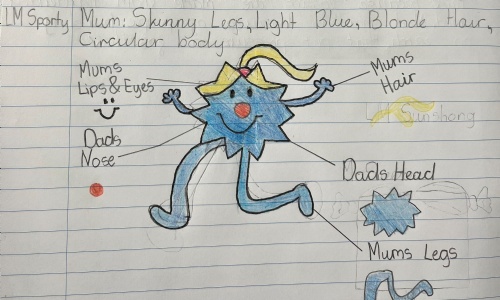 IM Sporty
Mum: Skinny Legs, Light Blue, Blonde Hair,
Circular body
Mums
Lips & Eyes
Mums
Hair
Dads
Nose
Sunshong
Dads Head
Mums Legs